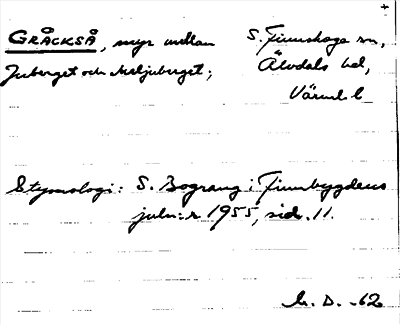 GRÅCKSÅ, myr mellan
Juberget och Meljuberget;
S. Finnskoga sn,
Älvdals hd,
Värml. l
Etymologi: S. Bograng i Finnbygdens
julnr 1955, sid. 11.
L. D. -62